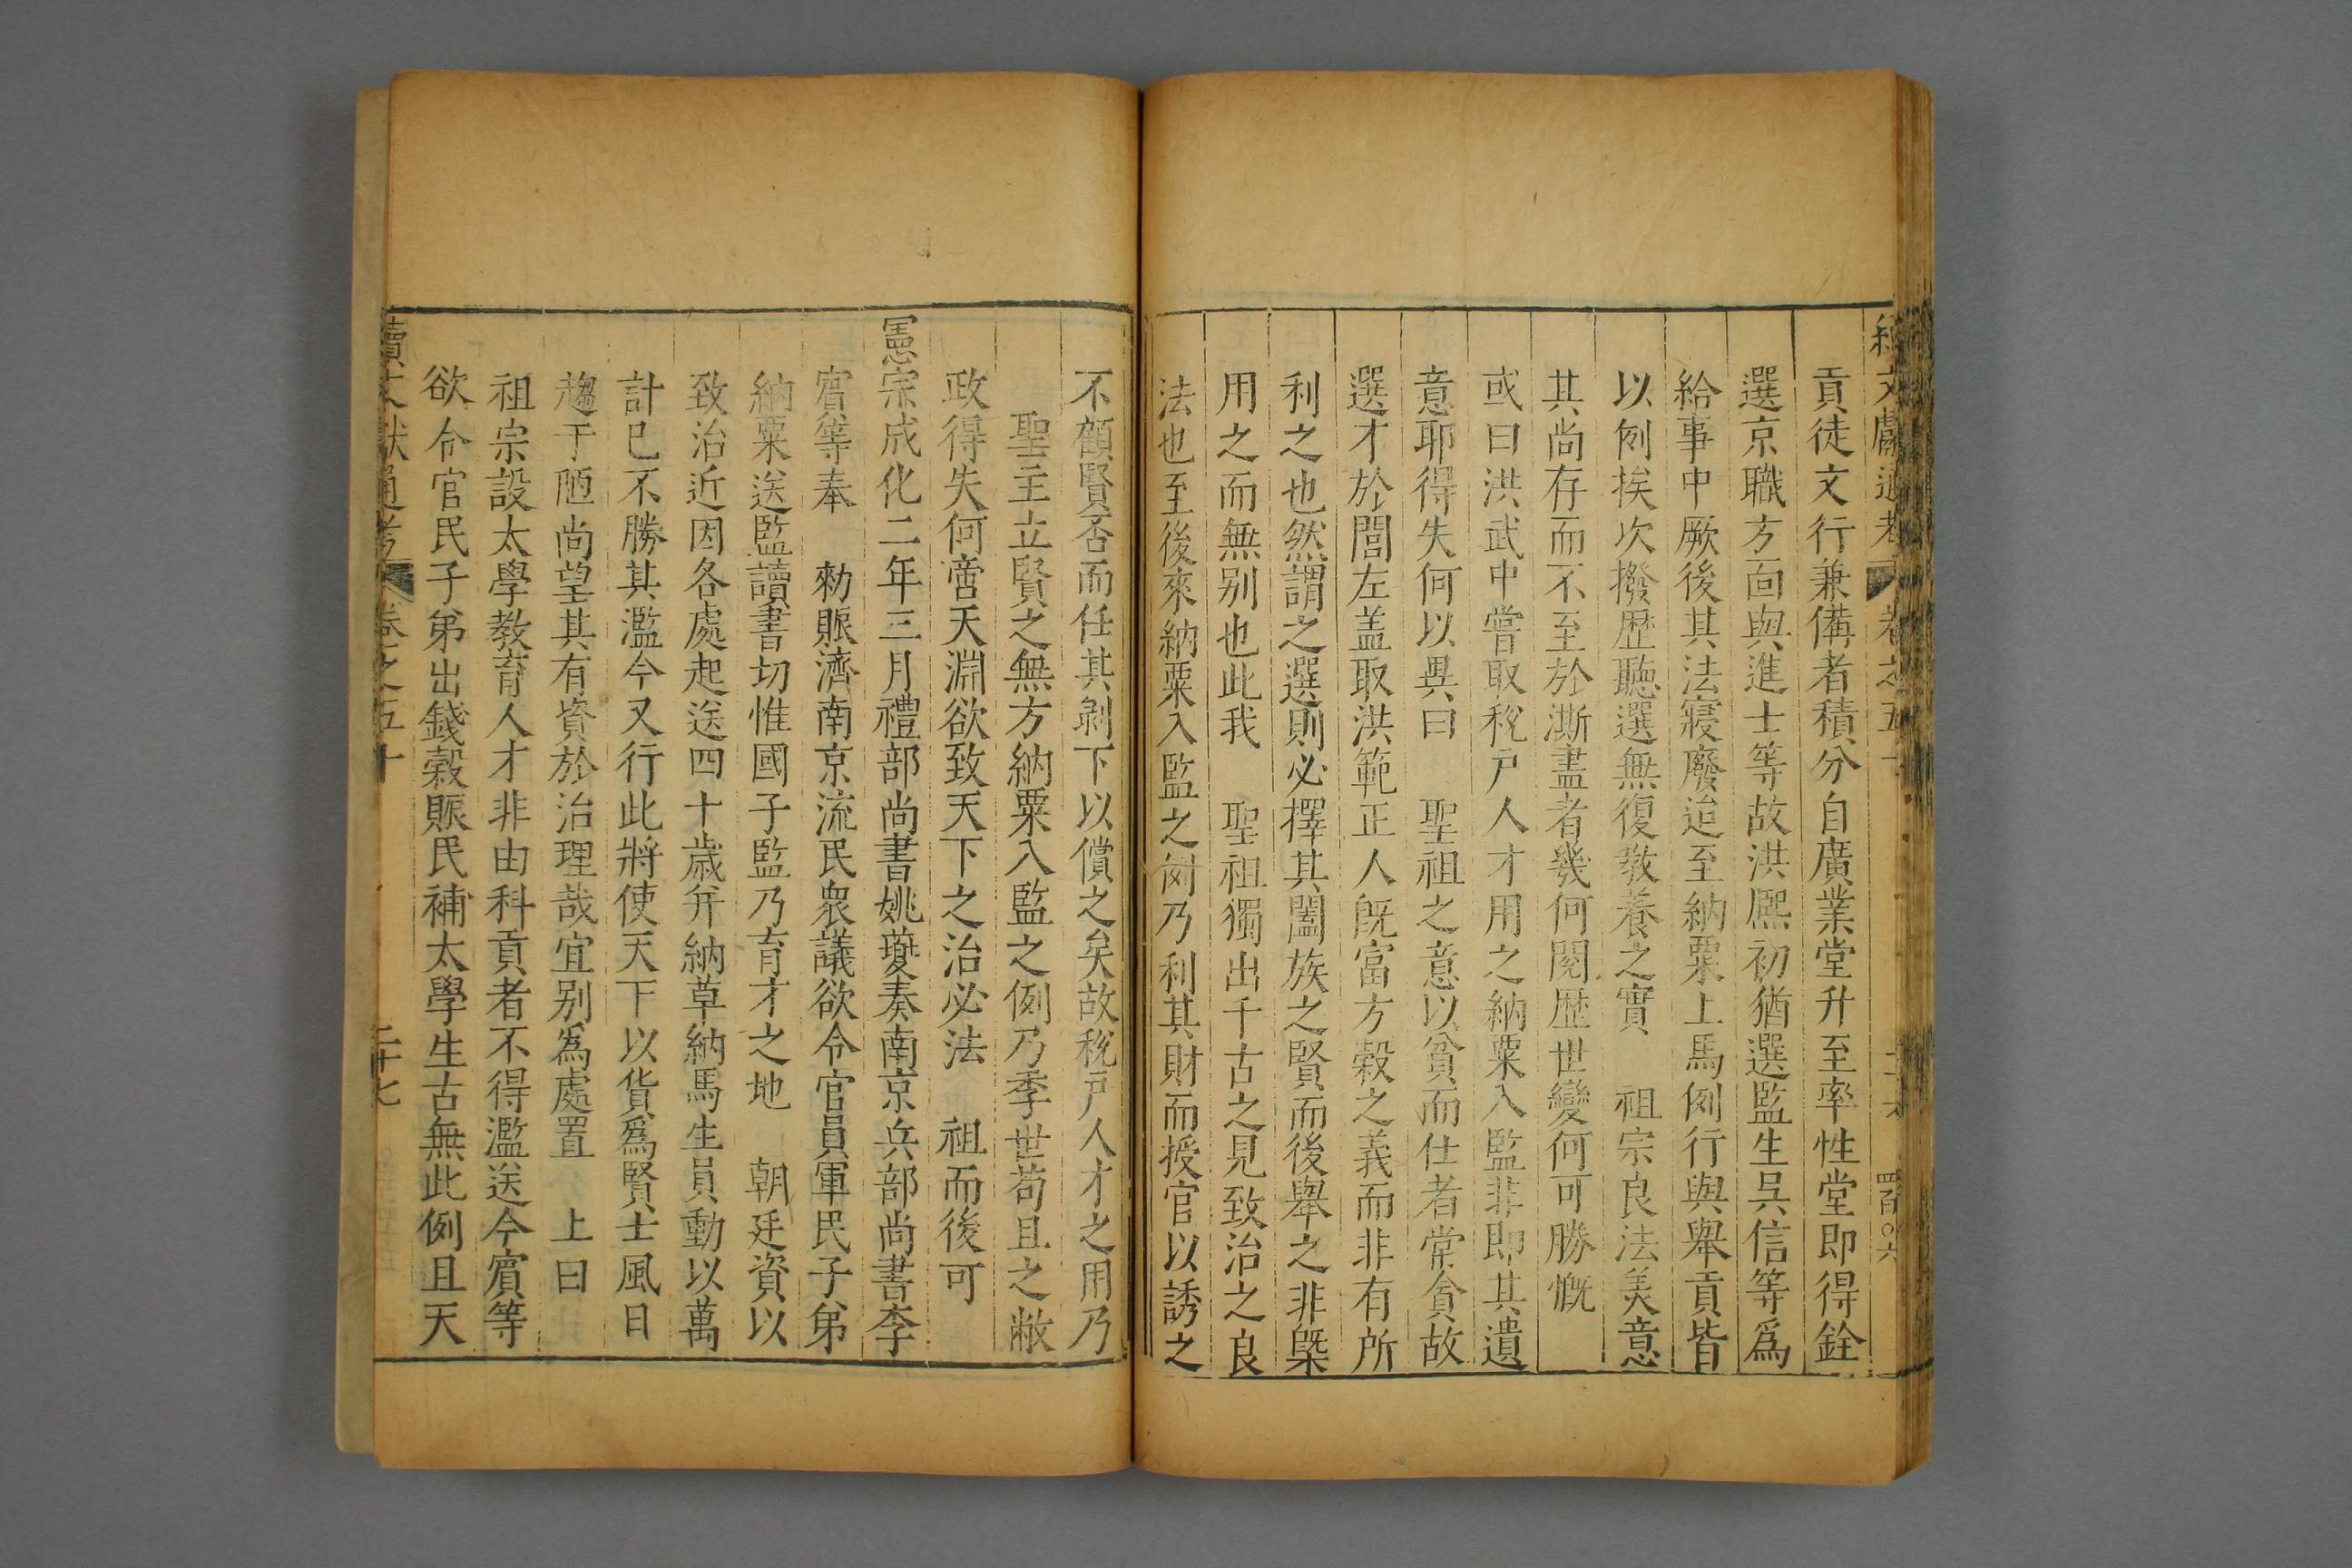 續文獻通考 卷之五十 二十六 四百〇六
貢徒文行兼備者積分自廣業堂升至率性堂即得銓
選京職方面與進士等故洪熈初猶選監生呉信等爲
給事中厥後其法寢廢迨至納粟上馬例行與舉貢皆
以例挨次撥歴聽選無復敎養之實 祖宗良法美意
其尚存而不至於澌盡者幾何閱歴世變何可勝慨
或曰洪武中嘗取稅戸人才用之納粟入監非即其遺
意耶得失何以異曰 聖祖之意以貧而仕者常貪故
選才於閭左盖取洪範正人旣富方穀之義而非有所
利之也然謂之選則必擇其闔族之賢而後舉之非槩
用之而無别也此我 聖祖獨出千古之見致治之良
法也至後來納粟入監之例乃利其財而授官以誘之
不顧賢否而任其剥下以償之矣故稅戸人才之用乃
聖主立賢之無方納粟入監之例乃季世茍且之敝
政得失何啻天淵欲致天下之治必法 祖而後可
憲宗成化二年三月禮部尚書姚夔奏南京兵部尚書李
賔等奉 勑賑濟南京流民衆議欲令官員軍民子弟
納粟送監讀書切惟國子監乃育才之地 朝廷資以
致治近因各處起送四十歳并納草納馬生員動以萬
計已不勝其濫今又行此將使天下以貨爲賢士風日
趨于陋尚望其有資於治理哉宜别爲處置 上曰
祖宗設太學敎育人才非由科貢者不得濫送今賔等
欲令官民子弟出錢穀賑民補太學生古無此例且天
續文獻通考 卷之五十 二十七